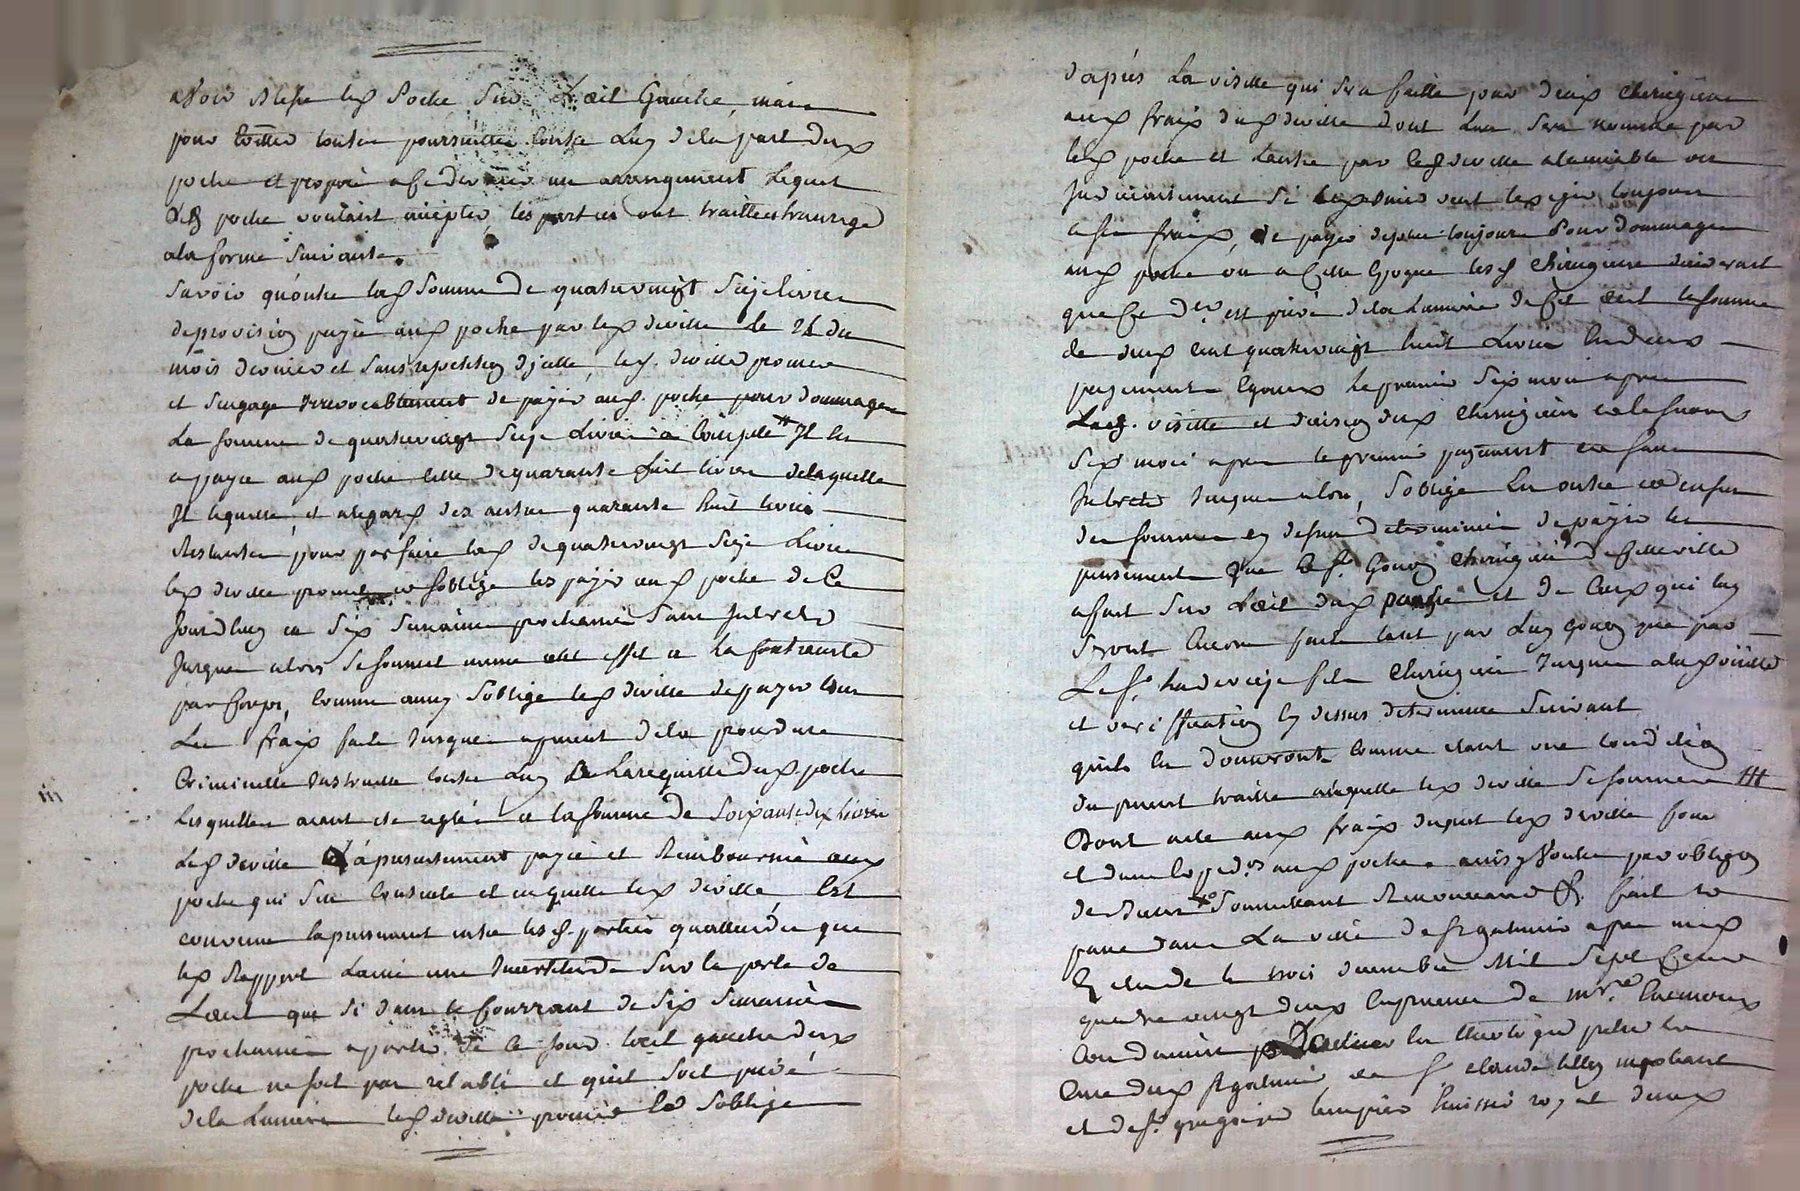 avoir blessé led. Poche sur L'œil Gauche, mais
pour éviter toutes poursuittes contre Luy de la part dud.
poche et proposé a ce dernier un arrengement Lequel
Led. poche voulant accepter, les parties ont traitté et transigé
a la forme suivante.
Savoir qu'outre lad. Somme de quatrevingt seize livres
de provision payée aud. poche par led. deville le 24 du
mois dernier et sans repetition d'jcelle, led. deville promet
et s'engage irrevocablement de payer aud. poche pour dommages
La somme de quatrevingt seize Livres a compte Jl en
a payé aud. poche celle de quarante huit livres de laquelle
Jl le quitte, et a legard des autres quarante huit livres
Restantes, pour parfaire lad. de quatrevingt seize Livres
led. deville promet et soblige les payer aud. poche de Ce
Jourdhuy en six semaines prochaines sans Jnterets
Jusques alors se soumet même a cet effet a la contrainte
par corps, comme aussy s'oblige led. deville de payer tous
Les frais faits Jusques a present de la procedure
Criminelle instruitte contre Luy a La requisition dud. poche
Lesquelles ayant été reglés a la somme de soixante dix livres
Led. deville a presentement payé et Remboursé aud.
poche qui s'en contente et en quitte led. deville, Est
convenu expressement entre lesd. parties qu'attendu que
led. Rapport Laisse une incertitude sur la perte de
L'œil que si dans le courrant de six semaines
prochaines a partir de ce jour l'œil gauche dud.
poche ne soit pas retabli et qu'il soit privé
de la Lumiere led. deville promet et s'oblige
d'après La visitte qui sera faitte par deux chirurgiens
aux frais dud. deville dont L'un sera nommé par
led. poche et L'autre par led. deville a l'amiable ou
Judiciairement si ce dernier veut l'exiger toujours
a ses frais, de payer de plus toujours Pour dommages
aud. poche ou a Cette Epoque lesd. chirurgiens decideraient
que Ce der. est privé de la Lumiere de Cet œil la somme
de deux cent quatrevingt huit Livres En deux
payements Egaux Le premier six mois apres
Lad. visitte et decision desd. chirurgiens et le second
six mois apres le premier payement et sans
Jnterets Jusques alors, s'oblige En outre et en sus
des sommes cy dessus determinées de payer les
pansements que le sr. Gouvy chirurgien de cette ville
a fait sur L'œil dud. poche et de Ceux qui luy
seront Encore faits tant par Luy Gouvy que par
Le sr. fils chirurgien Jusques a la visitte
et veriffication cy dessus determinée suivant
qu'ils En donneront comme etant une condition
du present traitté a laquelle led. deville se soumet
Dont acte aux frais dupt. led. deville
et d'une aud. poche, ainsy Voulu par obligon.
de Biens Soumettant Renonceant &. fait et
passé dans La ville de St galmier apres midy
Le trois decembre Mil Sept Cent
quatre vingt deux En presence de Mre.
En theologie pretre
Curé dud. St galmier et Sr Claude negotiant
et de sr. huissier royal deux